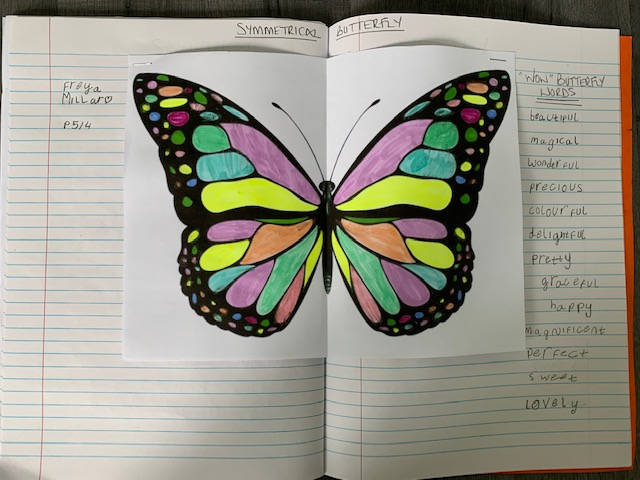 SYMMETRICAL BUTTERFLY
Freya
Millar
P5/4
"WOW" BUTTERFLY
WORDS
beautiful
magical
wonderful
precious
colourful
delightful
pretty
graceful
happy
magnificent
perfect
sweet
lovely